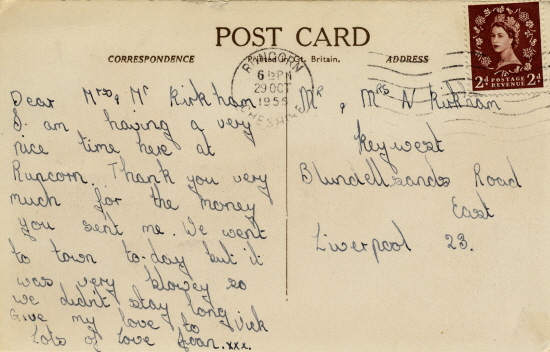 POST CARD
CORRESPONDENCE
Printed in Gt. Britain.
ADDRESS
RUNCORN
6 PM
29 OCT
1956
CHESHIRE
2d POSTAGE REVENUE 2d
Dear Mrs, Mr Kirkham
I am having a very
nice time here at
Runcorn. Thank you very
much for the money
you sent me. We went
to town to-day but it
was very blowey so
we didn't stay long
Give my love to Vick
Lots of love Jean.xxx.
Mr, Mrs N Kirkham
Keywest
Blundellsands Road
East
Liverpool 23.